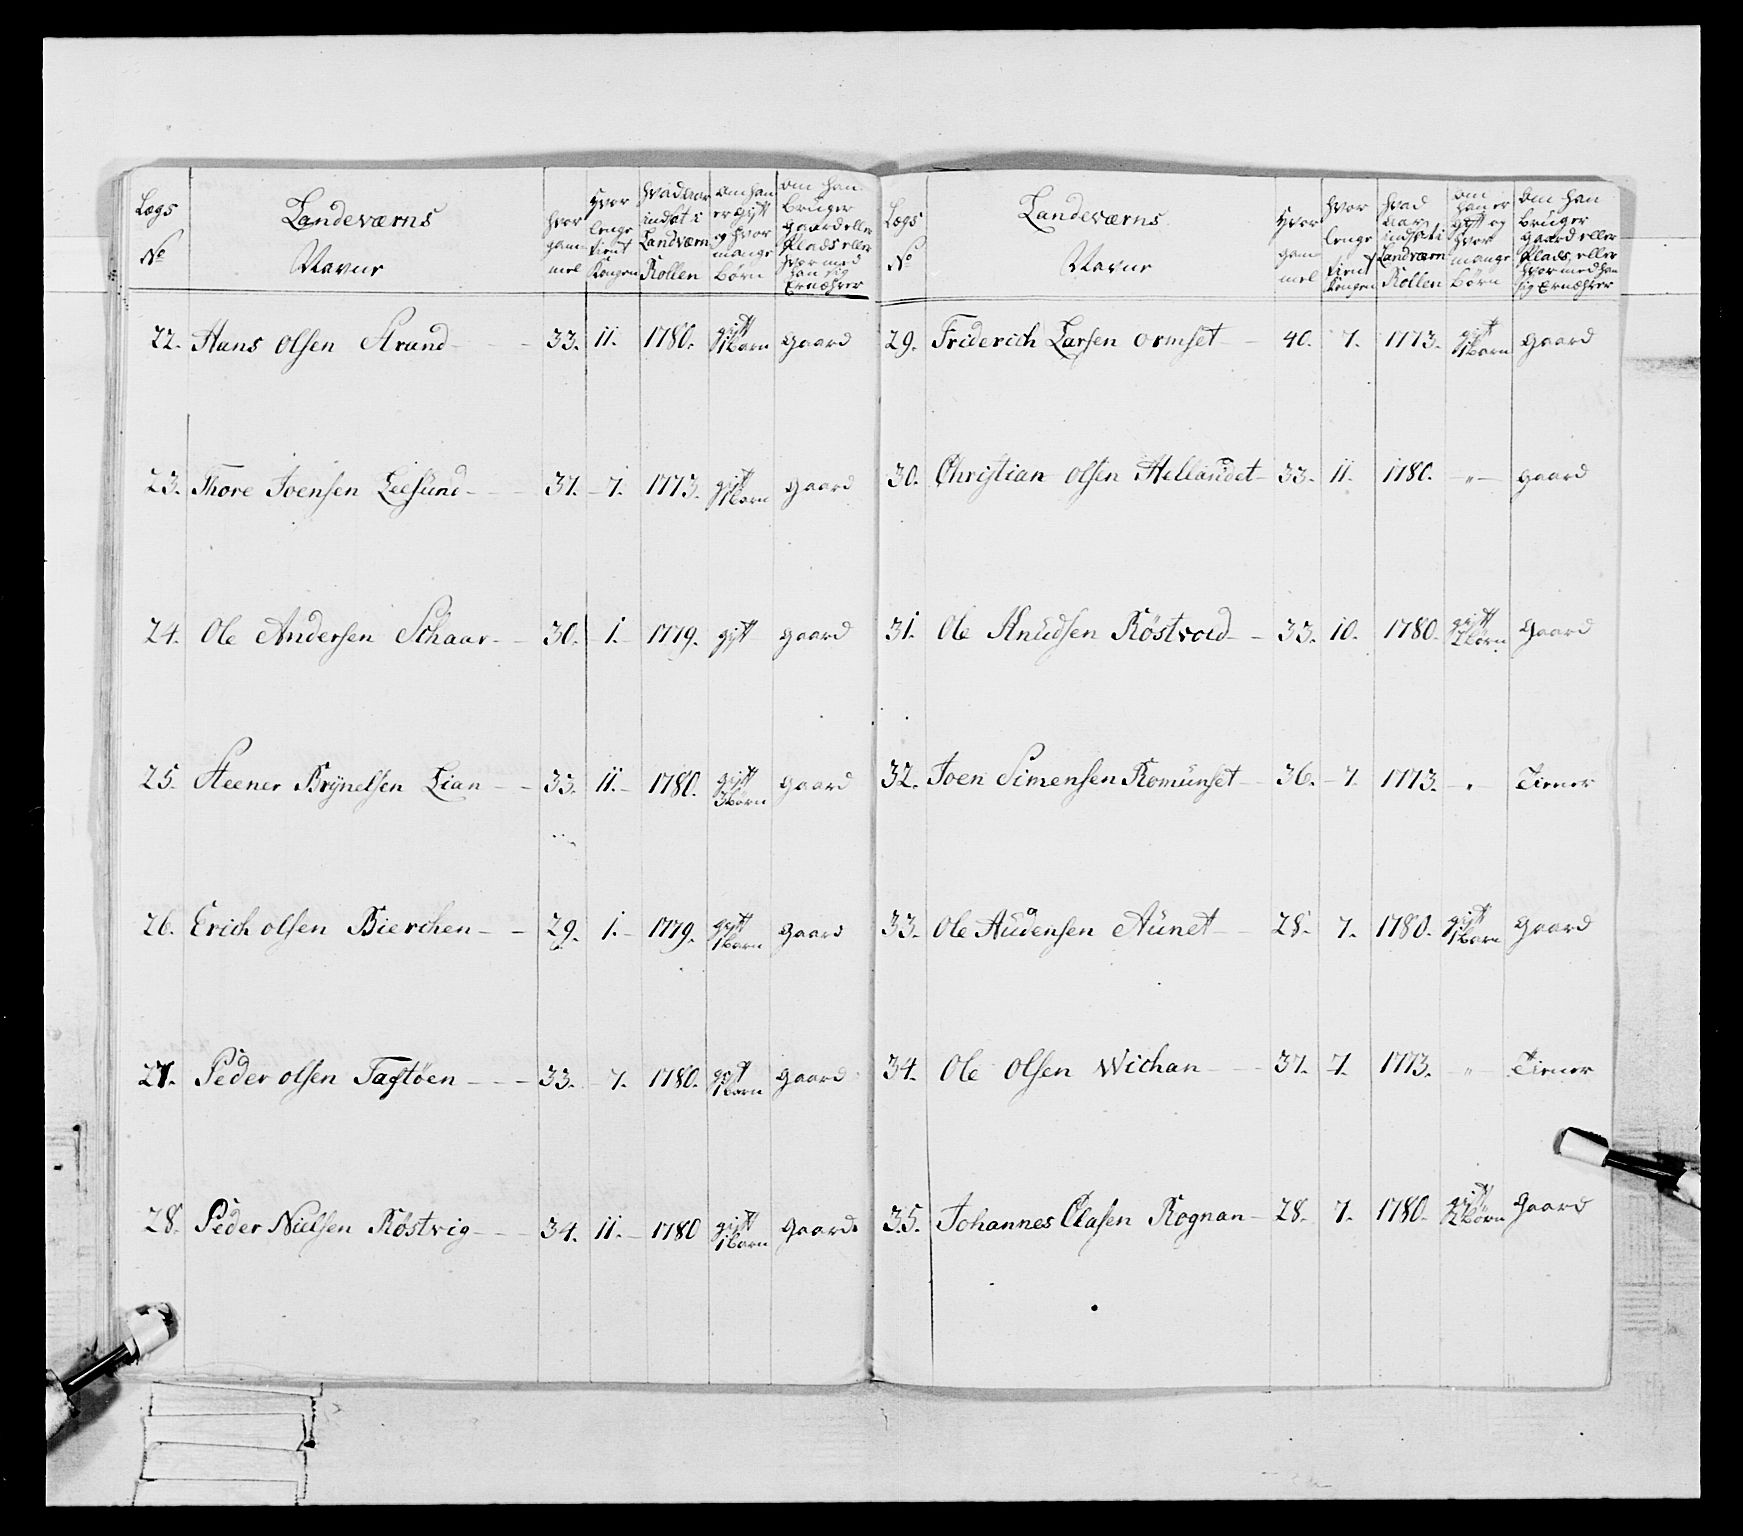 Lægs No | Landeværns Navne | Hvor gammel | Hvor lenge tient Kongen | Hvad aar indsat i Landværn Rollen | Om han er gift og hvor mange Børn | Om han bruger gaard eller Plads eller hvor med han sig Ernæhrer
22. Hans Olsen Strand - 33. 11. 1780. gift 1 Barn Gaard
23. Thore Joensen Leesund - 37. 7. 1773. gift 1 Barn Gaard
24. Ole Andersen Schaar - 30. 1. 1779. gift Gaard
25. Steener Brynelsen Lian - 33. 11. 1780. gift 3 Børn Gaard
26. Erich Olsen Bierchen - 29. 1. 1779. gift 1 Barn Gaard
27. Peder Olsen Taftøen - 33. 7. 1780. gift 1 Barn Gaard
28. Peder Nielsen Røstvig - 34. 11. 1780 gift 1 Barn Gaard
Lægs No | Landeværns Navne | Hvor gammel | Hvor lenge tient Kongen | Hvad aar indsat i Landværn Rollen | Om han er gift og hvor mange Børn | Om han bruger Gaard eller Plads, eller hvor med han sig Ernæhrer
29. Friderich Larsen Ormset - 40. 7. 1773. gift 1 Barn Gaard
30. Christian Olsen Hellandet - 33. 11. 1780. - " - Gaard
31. Ole Knudsen Røstvold - 33. 10. 1780. gift 2 Børn Gaard
32. Joen Simensen Romunset - 36. 7. 1773. - " - Tiener
33. Ole Audensen Aunet - 28. 7. 1780. gift 1 Barn Gaard
34. Ole Olsen Wichan - 37. 7. 1773. - " - Tiener
35. Johannes Olasen Rognan - 28. 7. 1780. gift 2 Børn Gaard